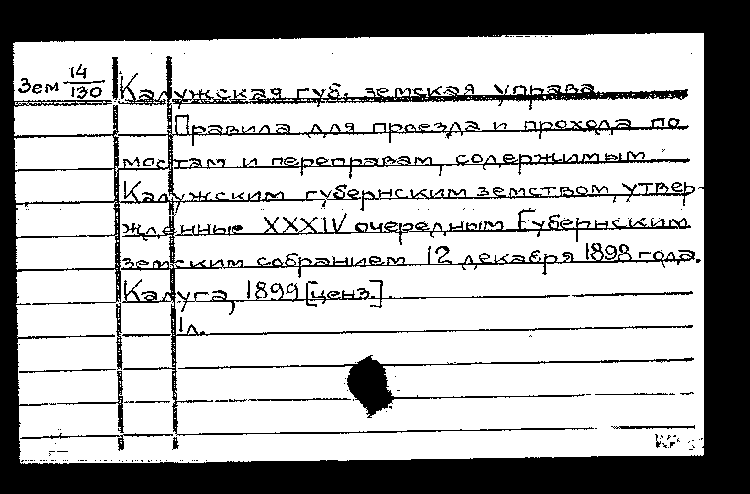 Зем 14/130 Калужская губ. земская управа
Правила для проезда и прохода по
мостам и переправам, содержимым
Калужским губернским земством, утвер-
жденные XXXIV очередным Губернским
земским собранием 12 декабря 1898 года.
Калуга, 1899 [ценз.].
1л.